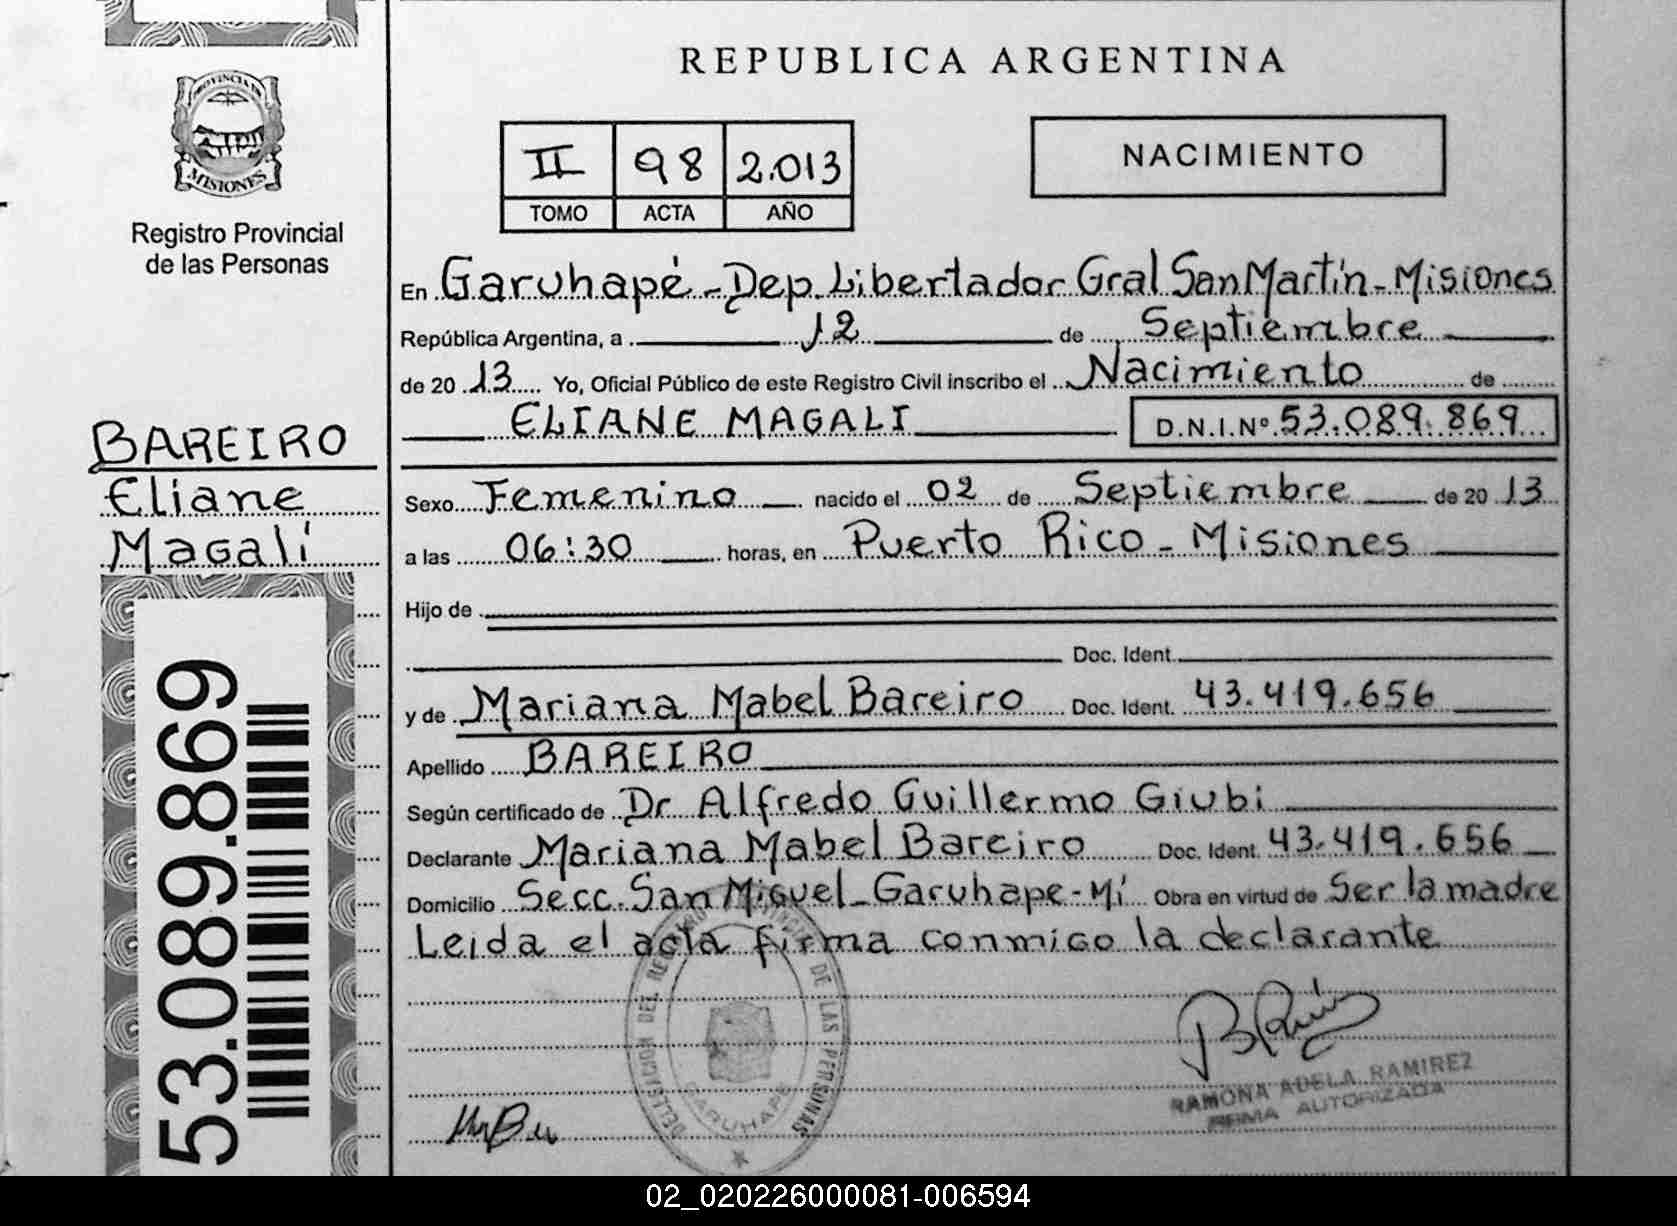 REPUBLICA ARGENTINA
PROVINCIA DE
MISIONES
Registro Provincial
de las Personas
II 98 2.013
TOMO ACTA AÑO
NACIMIENTO
En Garuhapé - Dep. Libertador Gral San Martín - Misiones
República Argentina, a 12 de Septiembre
de 20 13 Yo, Oficial Público de este Registro Civil inscribo el Nacimiento de
ELIANE MAGALI D.N.I.Nº 53.089.869
BAREIRO
Eliane
Magalí
Sexo Femenino nacido el 02 de Septiembre de 20 13
a las 06:30 horas, en Puerto Rico - Misiones
Hijo de
Doc. Ident.
y de Mariana Mabel Bareiro Doc. Ident. 43.419.656
Apellido BAREIRO
Según certificado de Dr Alfredo Guillermo Giubi
Declarante Mariana Mabel Bareiro Doc. Ident. 43.419.656
Domicilio Secc. San Miguel - Garuhape - Mí Obra en virtud de Ser la madre
Leida el acta firma conmigo la declarante
53.089.869
DELEGACION DEL REGISTRO PROVINCIAL DE LAS PERSONAS
GARUHAPE
RAMONA ADELA RAMIREZ
FIRMA AUTORIZADA
02_020226000081-006594